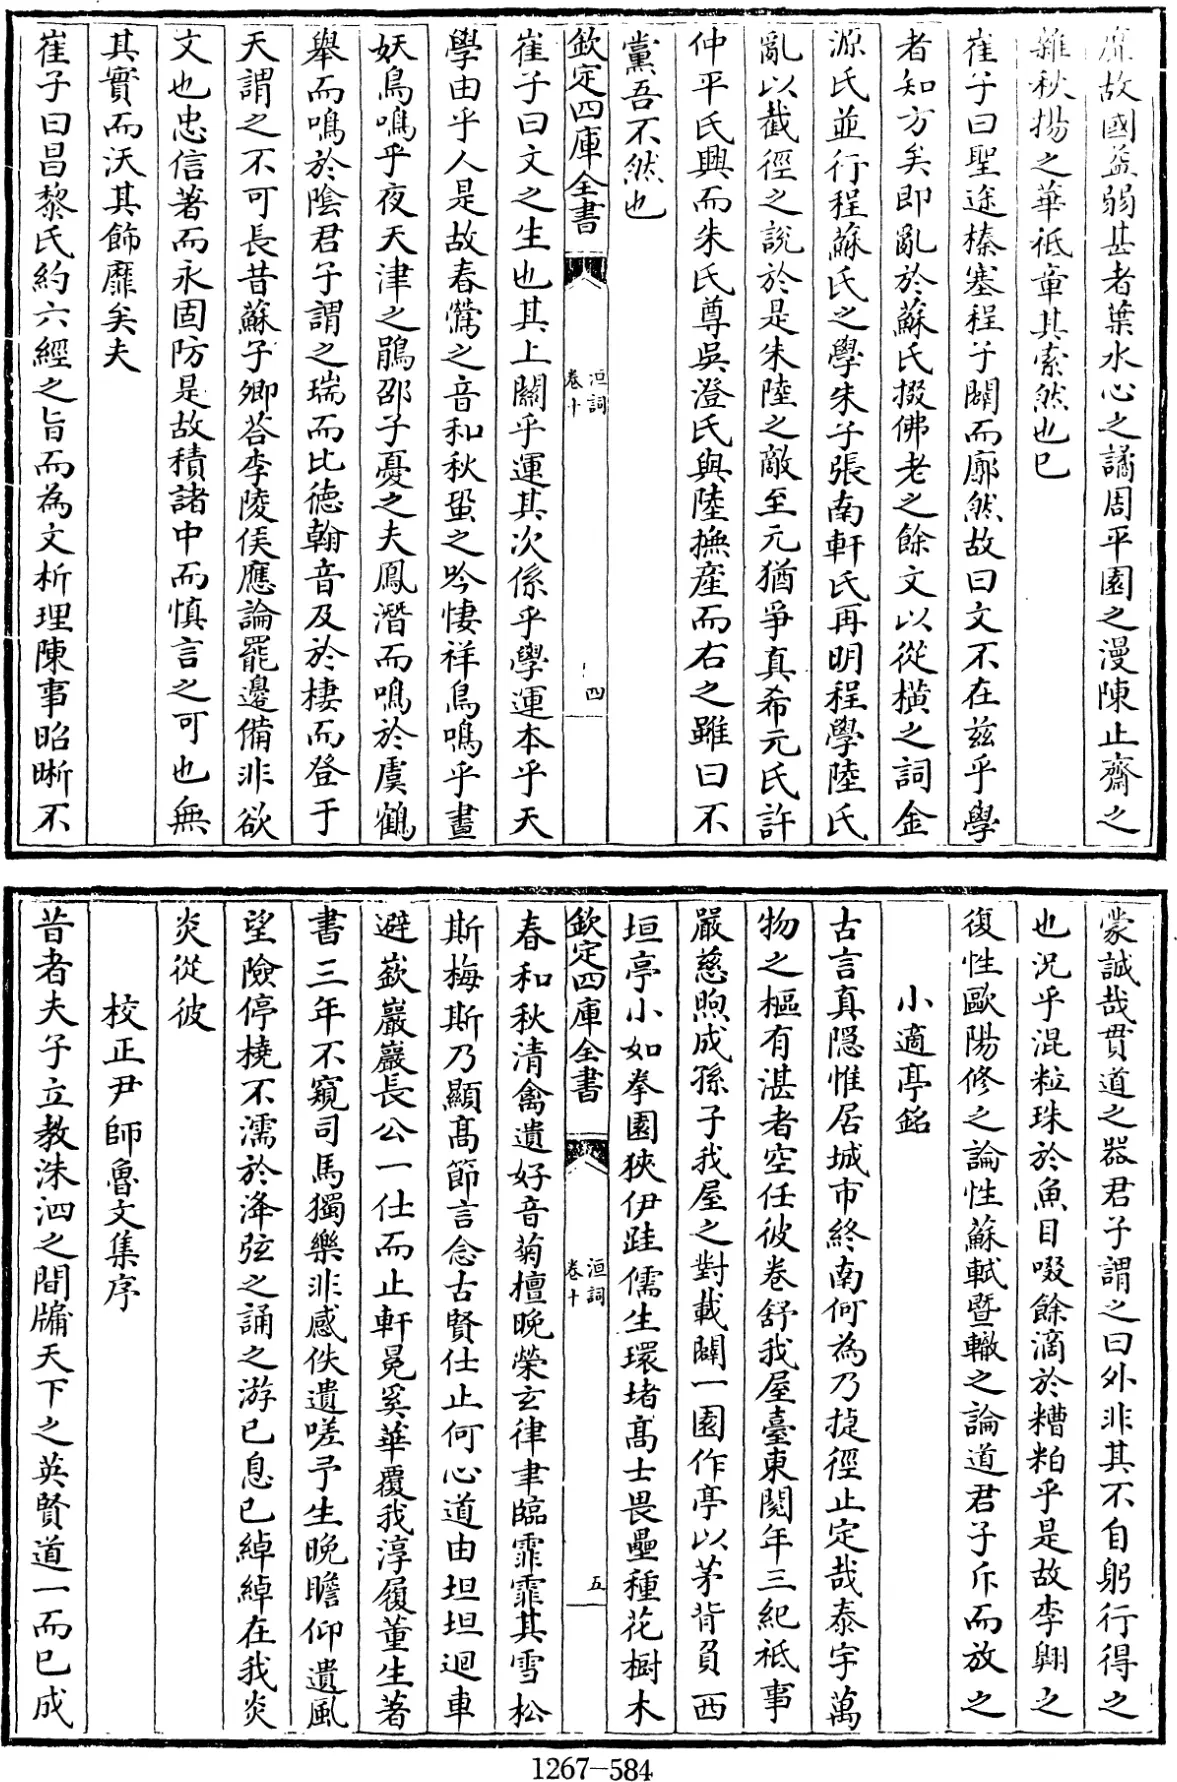 靡故國益弱甚者葉水心之譎周平園之漫陳止齋之
雜秋揚之華祗章其索然也已
崔子曰聖途榛塞程子闢而廓然故曰文不在兹乎學
者知方矣即亂於蘇氏掇佛老之餘文以從橫之詞金
源氏並行程蘇氏之學朱子張南軒氏再明程學陸氏
亂以截徑之說於是朱陸之敵至元猶爭真希元氏許
仲平氏興而朱氏尊吳澄氏與陸撫産而右之雖曰不
黨吾不然也
欽定四庫全書
洹詞
卷十
四
崔子曰文之生也其上關乎運其次係乎學運本乎天
學由乎人是故春鶯之音和秋蛩之吟悽祥鳥鳴乎晝
妖鳥鳴乎夜天津之鵑邵子憂之夫鳳潛而鳴於虞鶴
舉而鳴於陰君子謂之瑞而比德翰音及於棲而登于
天謂之不可長昔蘇子卿荅李陵侯應論罷邊備非欲
文也忠信著而永固防是故積諸中而慎言之可也無
其實而沃其飾靡矣夫
崔子曰昌黎氏約六經之旨而為文析理陳事昭晰不
蒙誠哉貫道之器君子謂之曰外非其不自躬行得之
也況乎混粒珠於魚目啜餘滴於糟粕乎是故李翺之
復性歐陽修之論性蘇軾暨轍之論道君子斥而放之
小適亭銘
古言真隱惟居城市終南何為乃捷徑止定哉泰宇萬
物之樞有湛者空任彼卷舒我屋臺東閱年三紀祗事
嚴慈煦成孫子我屋之對載闢一園作亭以茅背負西
垣亭小如拳園狹伊跬儒生環堵髙士畏壘種花樹木
欽定四庫全書
洹詞
卷十
五
春和秋清禽遺好音菊檀晚榮玄律聿臨霏霏其雪松
斯梅斯乃顯髙節言念古賢仕止何心道由坦坦迴車
避嶔巖巖長公一仕而止軒冕奚華覆我淳履董生著
書三年不窺司馬獨樂非感佚遺嗟予生晚瞻仰遺風
望險停橈不濡於洚弦之誦之游已息已綽綽在我炎
炎從彼
校正尹師魯文集序
昔者夫子立教洙泗之間牖天下之英賢道一而已成
1267-584